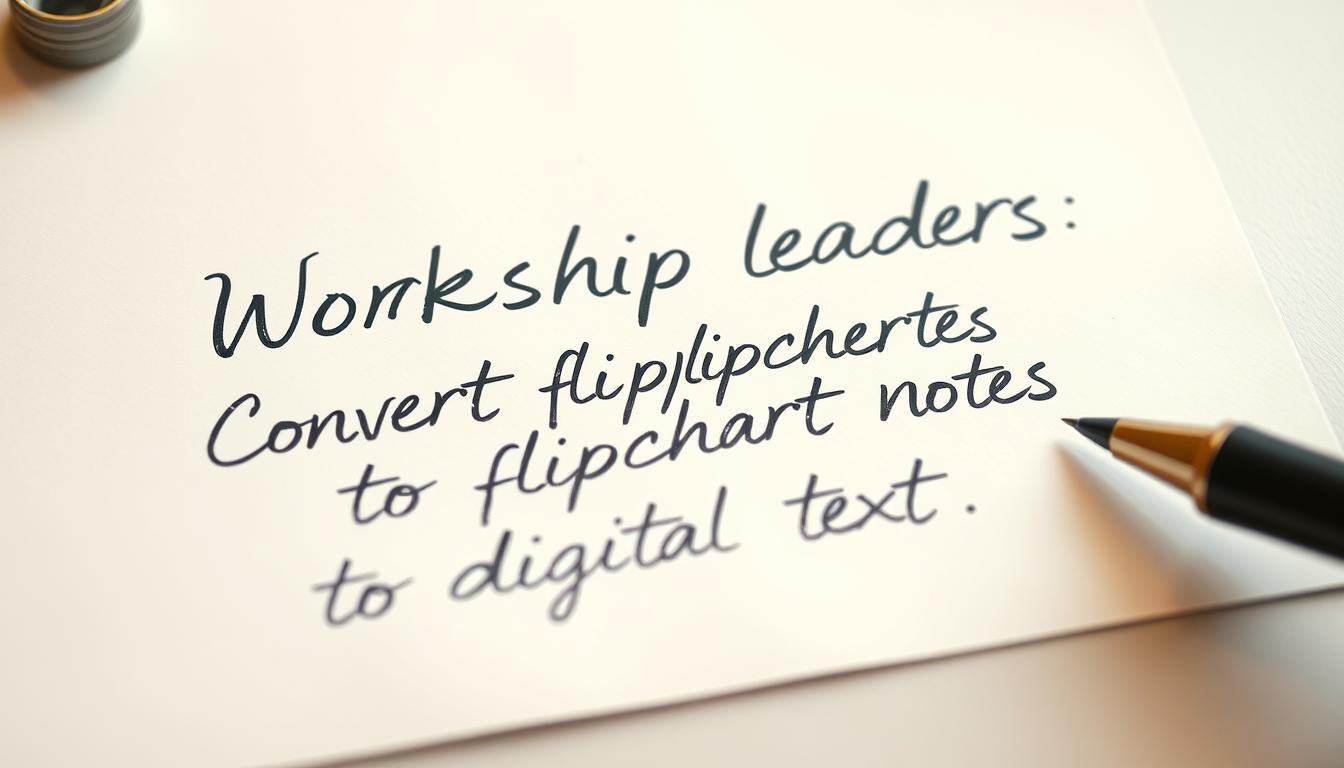 Workship leaders:
Convert flip/lipchertes
to flipchart notes
to digital text.